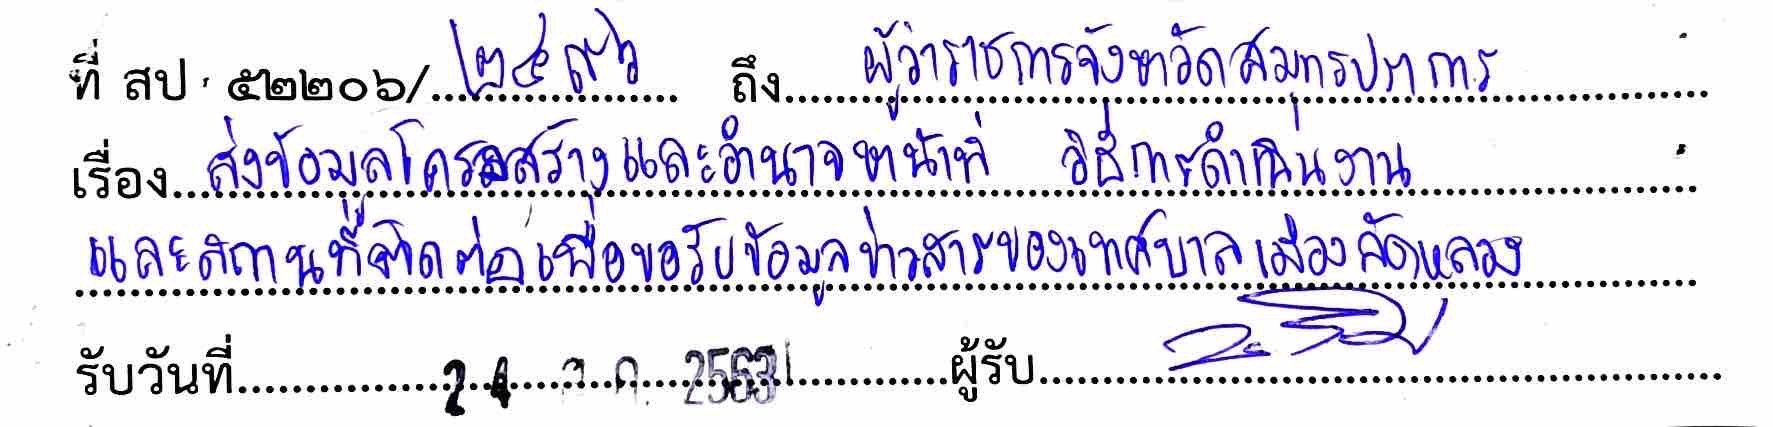 ที่ สป ๕๒๒๐๖/ ถึง ผู้ว่าราชการจังหวัดสมุทรปราการ
เรื่อง ส่งข้อมูลโครงสร้างและอำนาจหน้าที่ วิธีการดำเนินงาน
และสถานที่ติดต่อเพื่อขอรับข้อมูลข่าวสารของเทศบาลเมืองลัดหลวง
รับวันที่ 24 2563 ผู้รับ